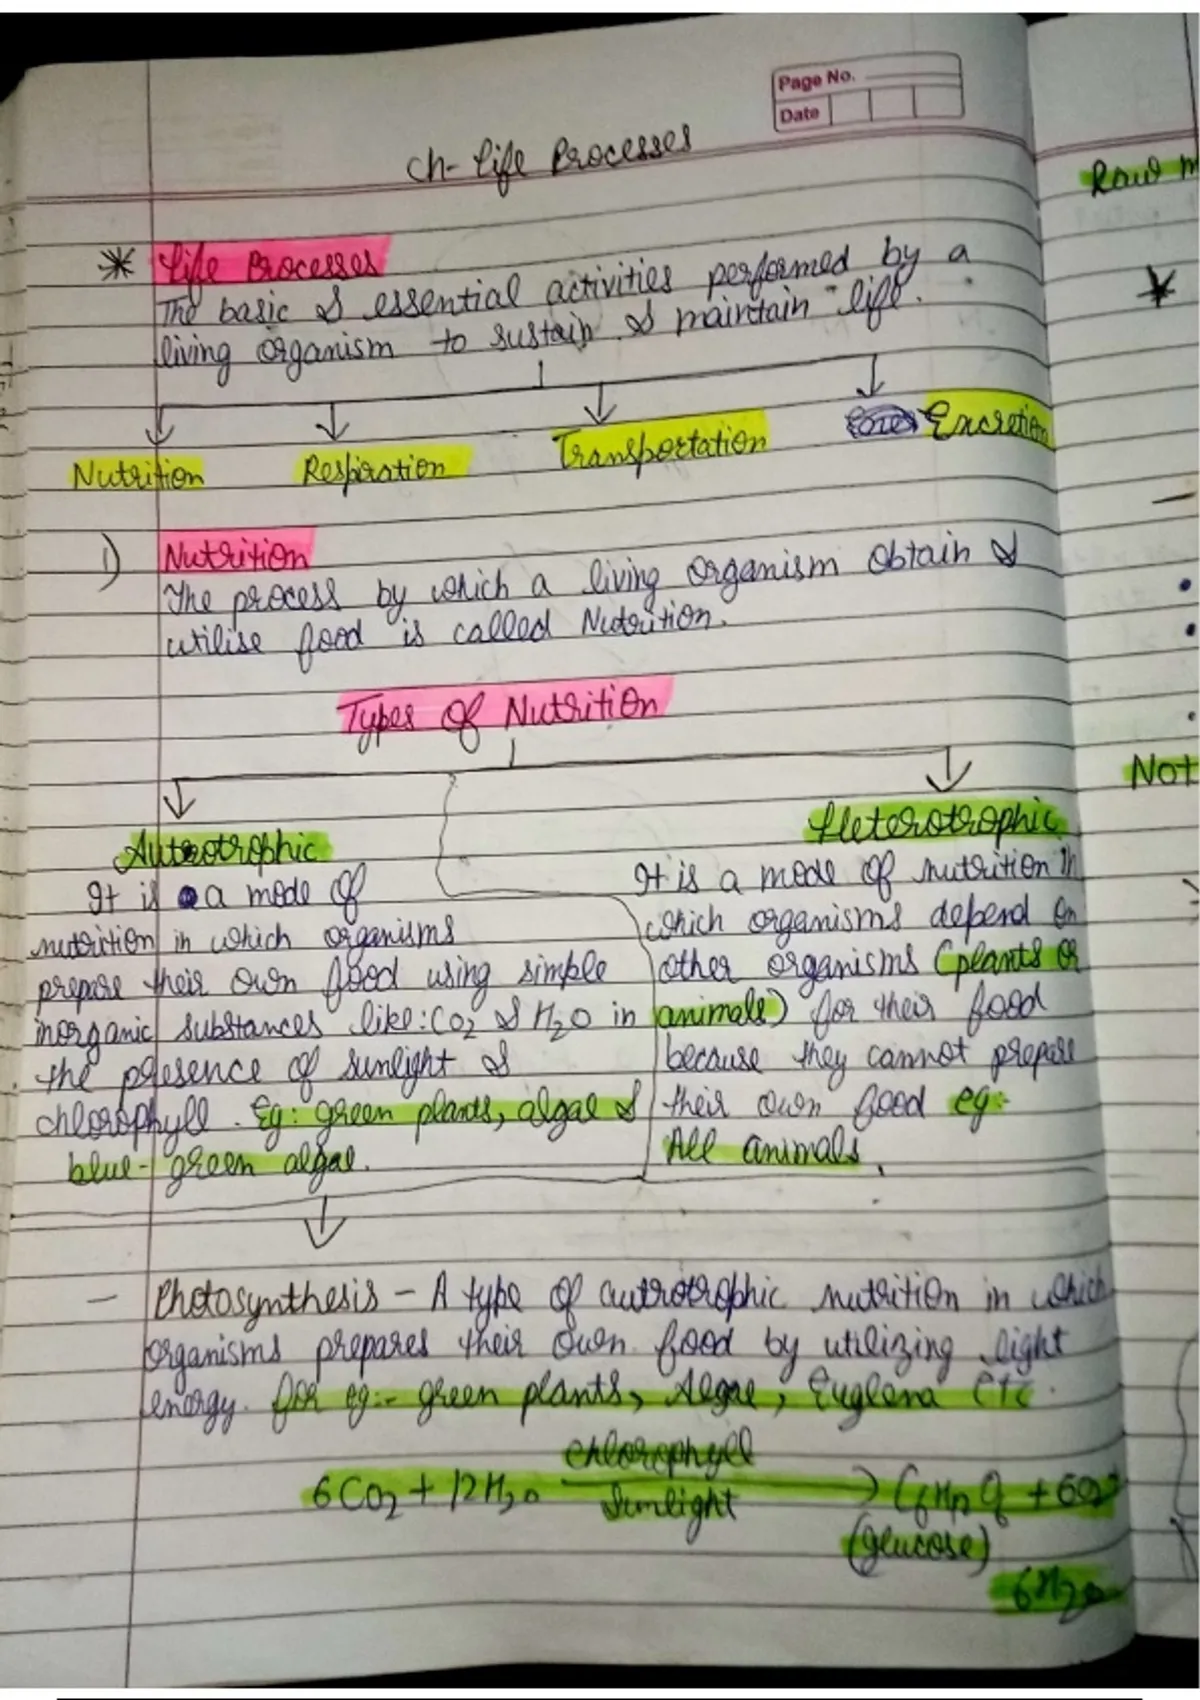 Page No.
Date
Ch- Life Processes
Raw m
* Life Processes
The basic & essential activities performed by a
living organism to sustain & maintain life.
Nutrition Respiration Transportation Excretion
1) Nutrition
The process by which a living organism obtain &
utilise food is called Nutrition.
Types Of Nutrition
Not
Autotrophic
It is a mode of
nutrition in which organisms
prepare their own food using simple
inorganic substances like: CO2 & H2O in
the presence of sunlight &
chlorophyll. Eg: green plants, algae &
blue-green algae.
Heterotrophic
It is a mode of nutrition in
which organisms depend on
other organisms (plants or
animals) for their food
because they cannot prepare
their own food eg:-
All animals.
- Photosynthesis - A type of autrotrophic nutrition in which
organisms prepares their own food by utilizing light
energy. for eg:- green plants, Algae, Euglena etc.
6CO2 + 12H2O chlorophyll Sunlight → C6H12O6 + 6O2 +
(glucose)
6H2O